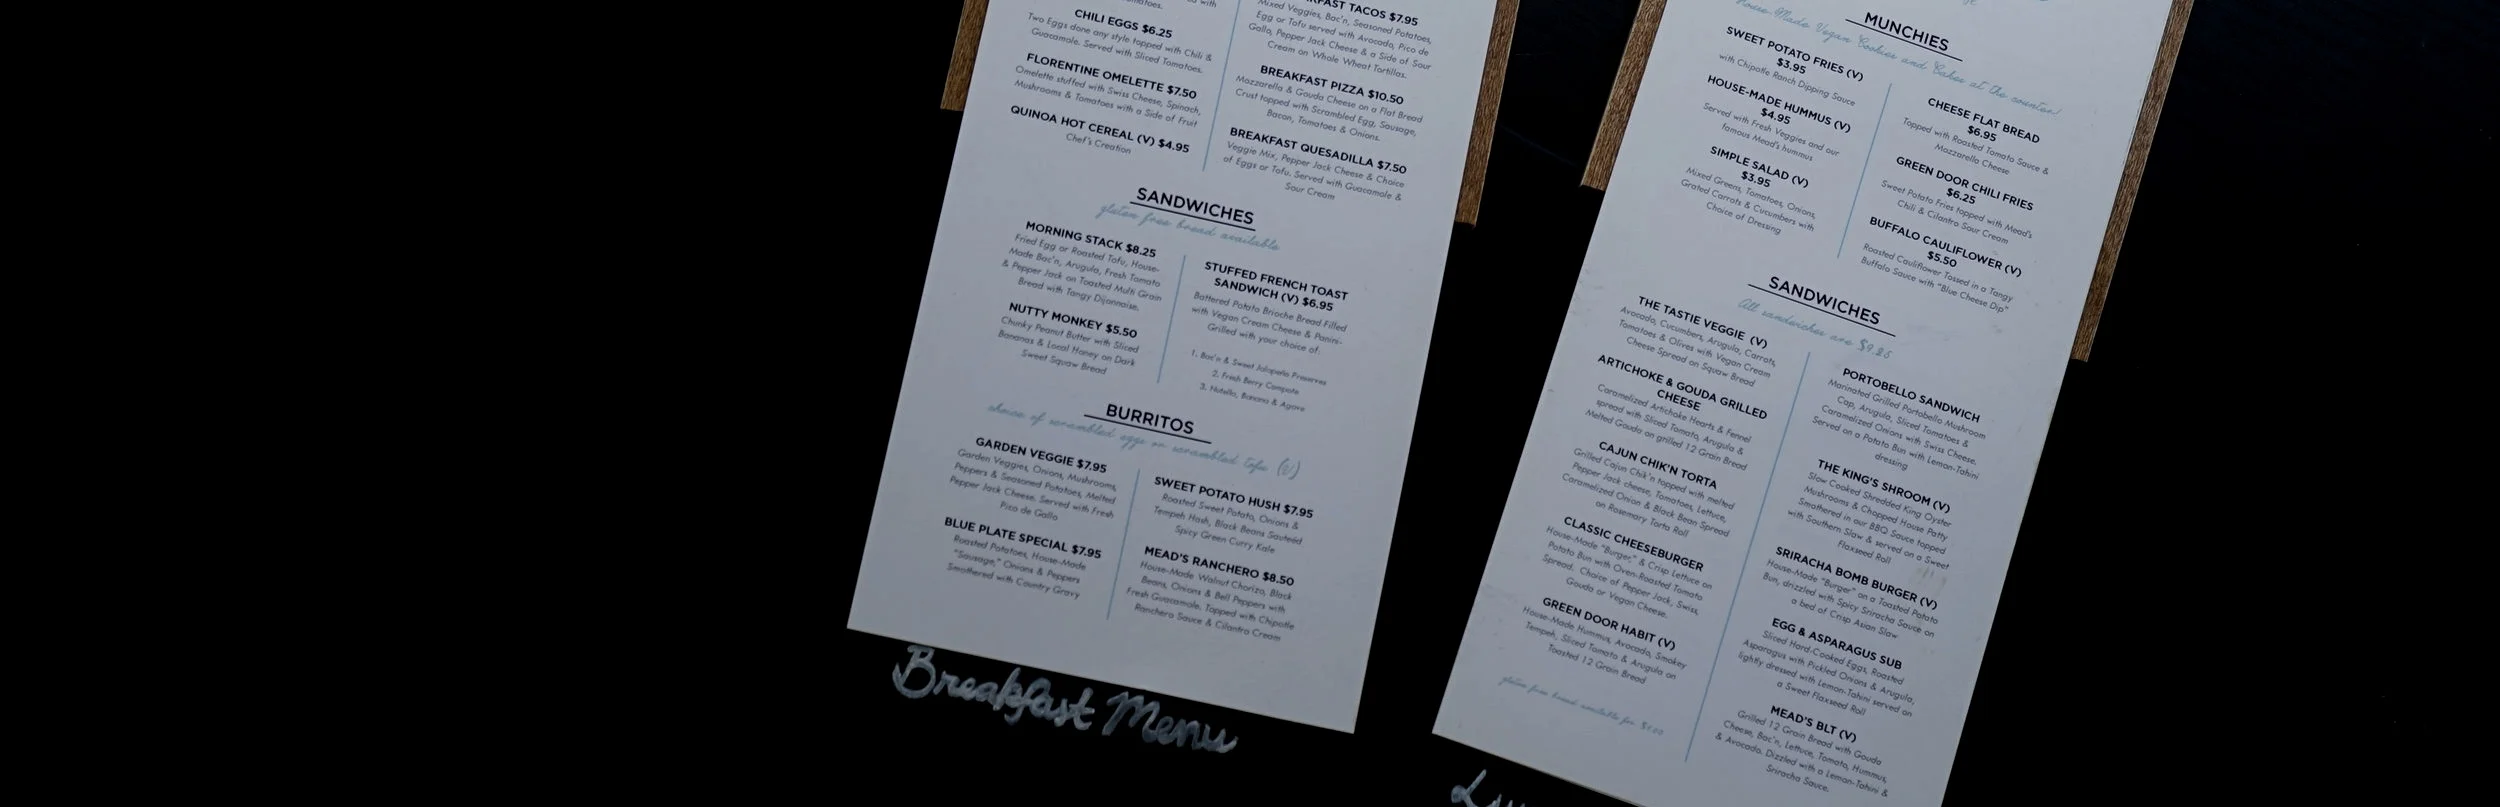 CHILI EGGS $6.25
Two Eggs done any style topped with Chili &
Guacamole. Served with Sliced Tomatoes.
FLORENTINE OMELETTE $7.50
Omelette stuffed with Swiss Cheese, Spinach,
Mushrooms & Tomatoes with a Side of Fruit
QUINOA HOT CEREAL (V) $4.95
Chef's Creation
TACOS $7.95
Mixed Veggies, Bac'n, Seasoned Potatoes,
Egg or Tofu served with Avocado, Pico de
Gallo, Pepper Jack Cheese & a Side of Sour
Cream on Whole Wheat Tortillas.
BREAKFAST PIZZA $10.50
Mozzarella & Gouda Cheese on a Flat Bread
Crust topped with Scrambled Egg, Sausage,
Bacon, Tomatoes & Onions.
BREAKFAST QUESADILLA $7.50
Veggie Mix, Pepper Jack Cheese & Choice
of Eggs or Tofu. Served with Guacamole &
Sour Cream
SANDWICHES
gluten free bread available
MORNING STACK $8.25
Fried Egg or Roasted Tofu, House-
Made Bac'n, Arugula, Fresh Tomato
& Pepper Jack on Toasted Multi Grain
Bread with Tangy Dijonnaise.
NUTTY MONKEY $5.50
Chunky Peanut Butter with Sliced
Bananas & Local Honey on Dark
Sweet Squaw Bread
STUFFED FRENCH TOAST
SANDWICH (V) $6.95
Battered Potato Brioche Bread Filled
with Vegan Cream Cheese & Panini-
Grilled with your choice of:
1. Bac'n & Sweet Jalapeño Preserves
2. Fresh Berry Compote
3. Nutella, Banana & Agave
BURRITOS
choice of scrambled eggs or scrambled tofu (V)
GARDEN VEGGIE $7.95
Garden Veggies, Onions, Mushrooms,
Peppers & Seasoned Potatoes, Melted
Pepper Jack Cheese. Served with Fresh
Pico de Gallo
BLUE PLATE SPECIAL $7.95
Roasted Potatoes, House-Made
"Sausage," Onions & Peppers
Smothered with Country Gravy
SWEET POTATO HUSH $7.95
Roasted Sweet Potato, Onions &
Tempeh Hash, Black Beans Sauteéd
Spicy Green Curry Kale
MEAD'S RANCHERO $8.50
House-Made Walnut Chorizo, Black
Beans, Onions & Bell Peppers with
Fresh Guacamole. Topped with Chipotle
Ranchero Sauce & Cilantro Cream
Breakfast Menu
House-Made Vegan Cookies and Cakes at the counter!
MUNCHIES
SWEET POTATO FRIES (V)
$3.95
with Chipotle Ranch Dipping Sauce
HOUSE-MADE HUMMUS (V)
$4.95
Served with Fresh Veggies and our
famous Mead's hummus
SIMPLE SALAD (V)
$3.95
Mixed Greens, Tomatoes, Onions,
Grated Carrots & Cucumbers with
Choice of Dressing
CHEESE FLAT BREAD
$6.95
Topped with Roasted Tomato Sauce &
Mozzarella Cheese
GREEN DOOR CHILI FRIES
$6.25
Sweet Potato Fries topped with Mead's
Chili & Cilantro Sour Cream
BUFFALO CAULIFLOWER (V)
$5.50
Roasted Cauliflower Tossed in a Tangy
Buffalo Sauce with "Blue Cheese Dip"
SANDWICHES
All sandwiches are $9.25
THE TASTIE VEGGIE (V)
Avocado, Cucumbers, Arugula, Carrots,
Tomatoes & Olives with Vegan Cream
Cheese Spread on Squaw Bread
ARTICHOKE & GOUDA GRILLED
CHEESE
Caramelized Artichoke Hearts & Fennel
spread with Sliced Tomato, Arugula &
Melted Gouda on grilled 12 Grain Bread
CAJUN CHIK'N TORTA
Grilled Cajun Chik'n topped with melted
Pepper Jack cheese, Tomatoes, Lettuce,
Caramelized Onion & Black Bean Spread
on Rosemary Torta Roll
CLASSIC CHEESEBURGER
House-Made "Burger," & Crisp Lettuce on
Potato Bun with Oven-Roasted Tomato
Spread. Choice of Pepper Jack, Swiss,
Gouda or Vegan Cheese.
GREEN DOOR HABIT (V)
House-Made Hummus, Avocado, Smokey
Tempeh, Sliced Tomato & Arugula on
Toasted 12 Grain Bread
gluten free bread available for $1.00
PORTOBELLO SANDWICH
Marinated Grilled Portobello Mushroom
Cap, Arugula, Sliced Tomatoes &
Caramelized Onions with Swiss Cheese.
Served on a Potato Bun with Lemon-Tahini
dressing
THE KING'S SHROOM (V)
Slow Cooked Shredded King Oyster
Mushrooms & Chopped House Patty
Smothered in our BBQ Sauce topped
with Southern Slaw & served on a Sweet
Flaxseed Roll
SRIRACHA BOMB BURGER (V)
House-Made "Burger" on a Toasted Potato
Bun, drizzled with Spicy Sriracha Sauce on
a bed of Crisp Asian Slaw
EGG & ASPARAGUS SUB
Sliced Hard-Cooked Eggs, Roasted
Asparagus with Pickled Onions & Arugula,
lightly dressed with Lemon-Tahini served on
a Sweet Flaxseed Roll
MEAD'S BLT (V)
Grilled 12 Grain Bread with Gouda
Cheese, Bac'n, Lettuce, Tomato, Hummus,
& Avocado. Dizzled with a Lemon-Tahini &
Sriracha Sauce.